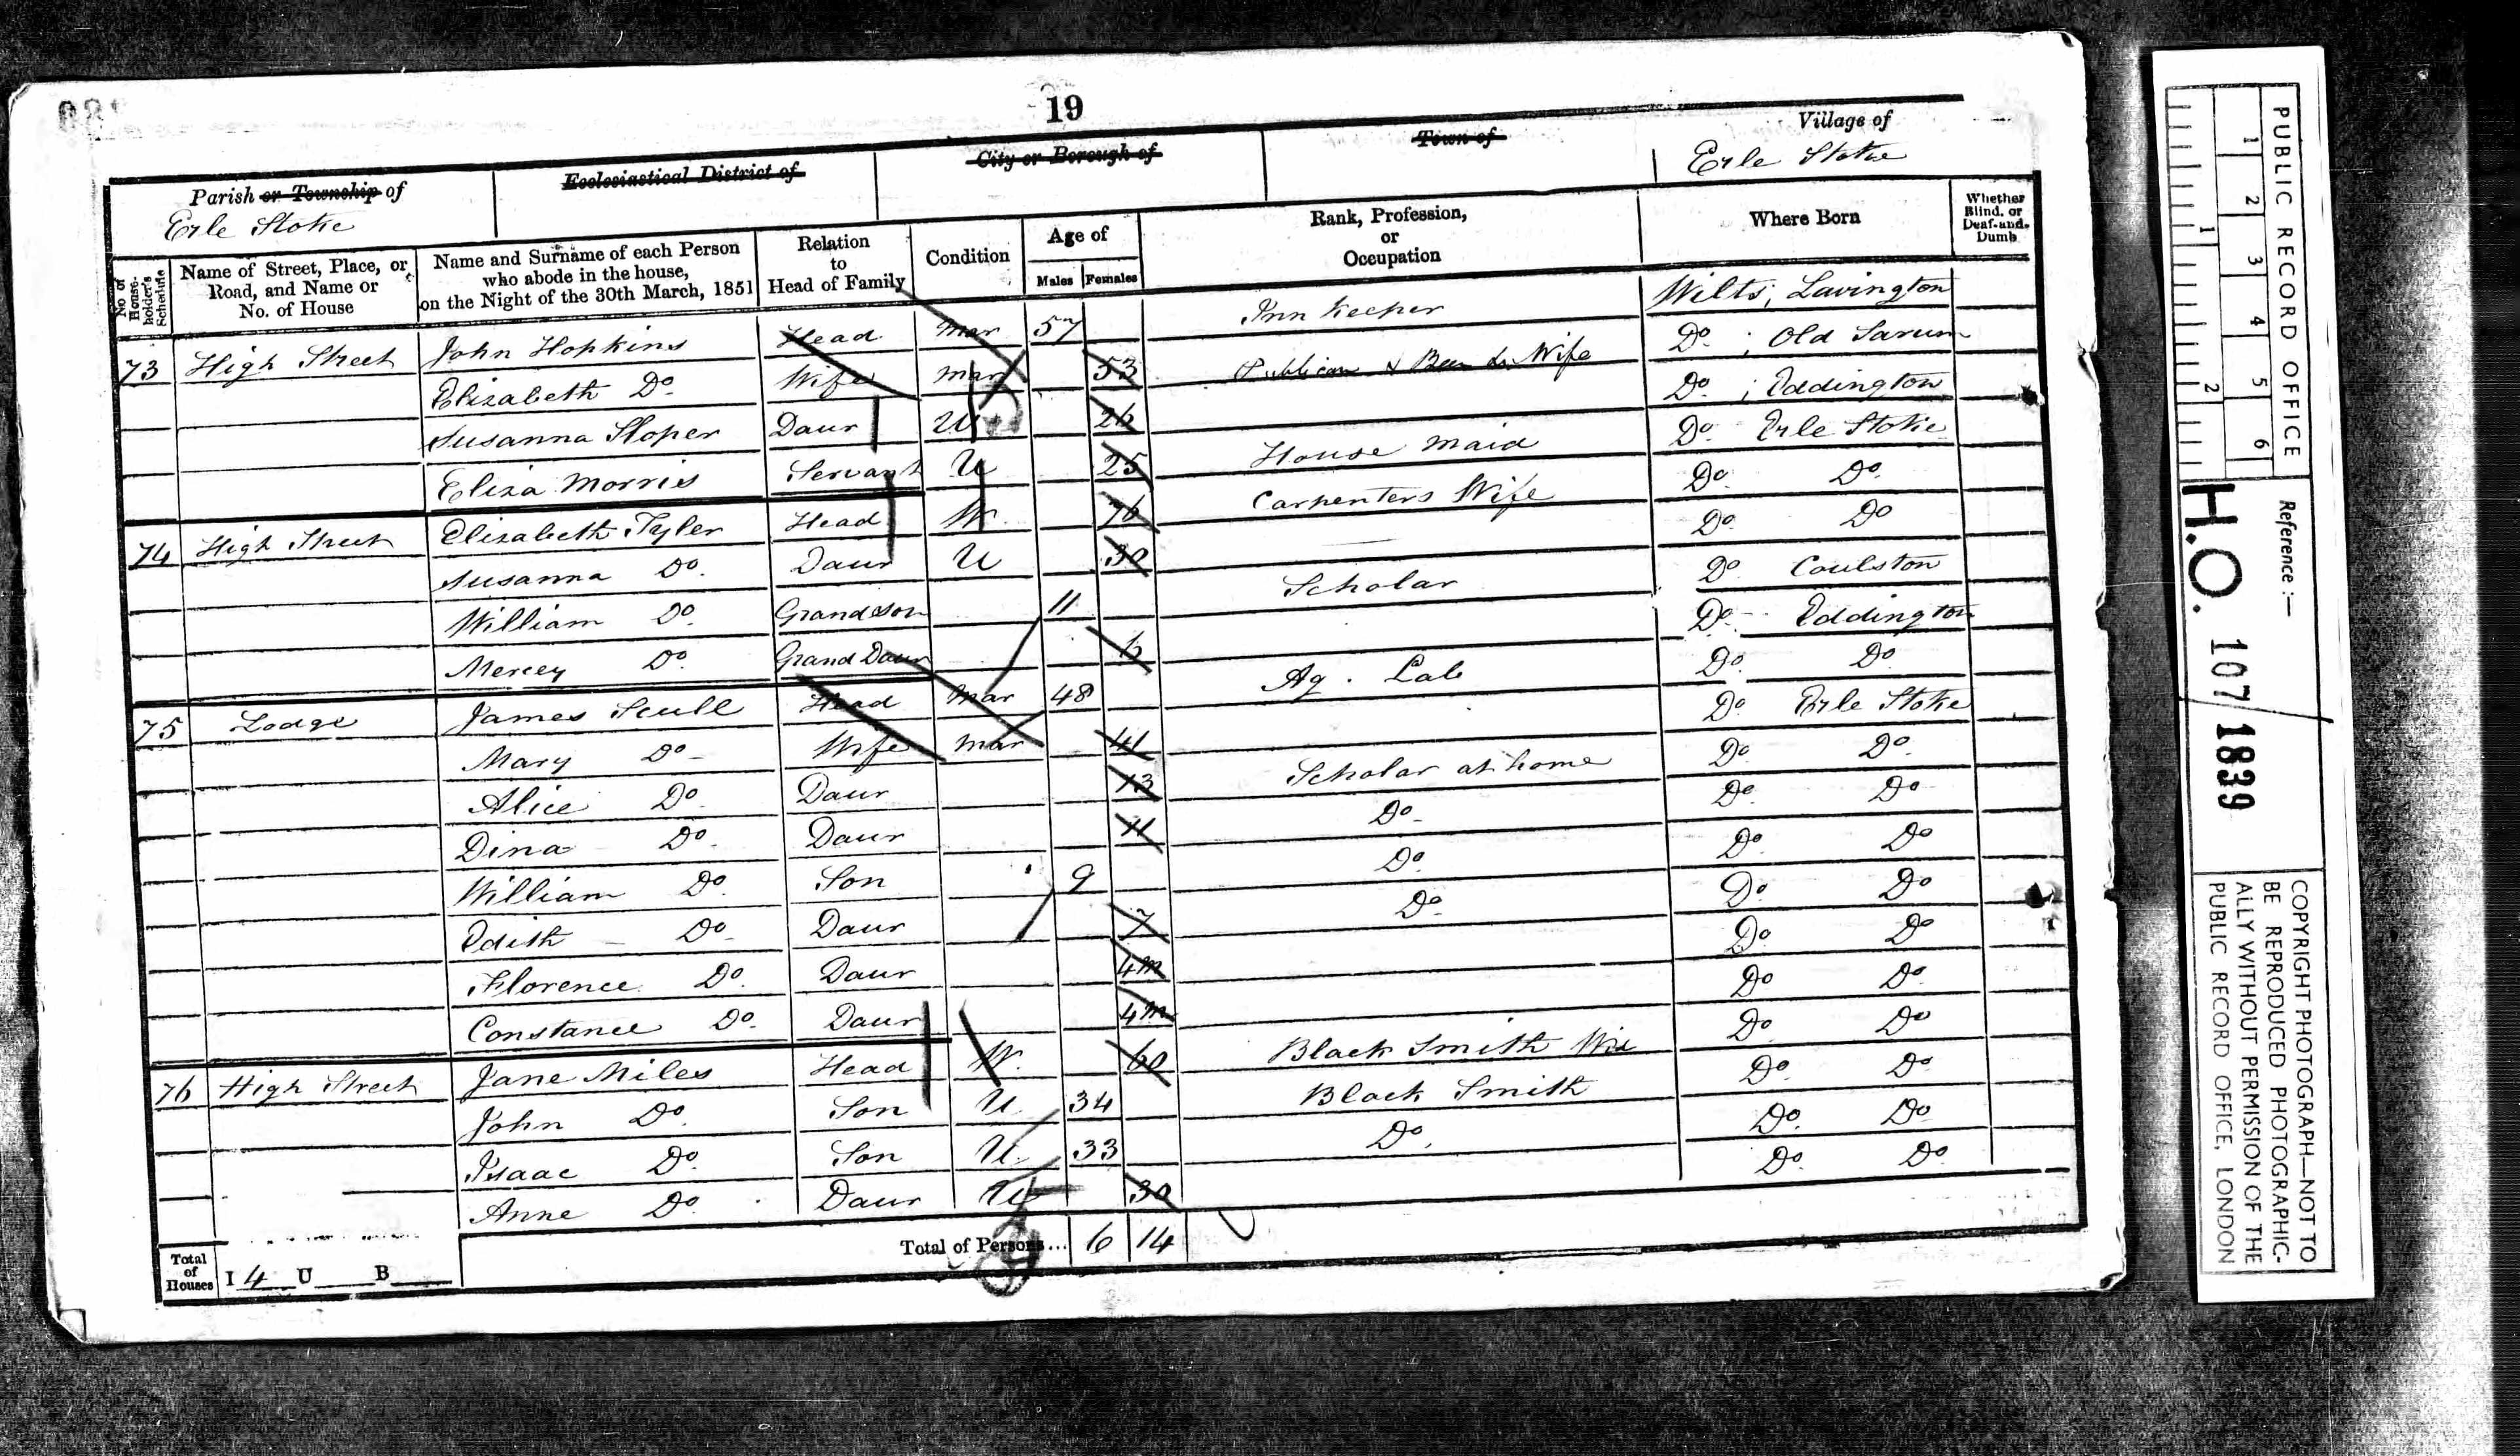 19
Parish or Township of
Erle Stoke
Ecclesiastical District of
City or Borough of
Town of
Village of
Erle Stoke
No. of House-holder's Schedule
Name of Street, Place, or Road, and Name or No. of House
Name and Surname of each Person who abode in the house, on the Night of the 30th March, 1851
Relation to Head of Family
Condition
Age of
Males Females
Rank, Profession, or Occupation
Where Born
Whether Blind, or Deaf-and-Dumb
73 High Street John Hopkins Head Mar 57 Inn Keeper Wilts; Lavington
Elizabeth Do. Wife Mar 53 Publican & Wife Do. ; Old Sarum
Susanna Sloper Daur U 26 Do. ; Eddington
Eliza Morris Servant U 25 House Maid Do. Erle Stoke
74 High Street Elizabeth Tyler Head W. 76 Carpenters Wife Do. Do.
Susanna Do. Daur U 30 Do. Do
William Do. Grandson 11 Scholar Do. Coulston
Mercey Do. Grand Daur 6 Do. Eddington
75 Lodge James Scull Head Mar 48 Ag. Lab Do. Do.
Mary Do. Wife Mar 41 Do. Erle Stoke
Alice Do. Daur 13 Scholar at home Do. Do.
Dina Do. Daur 11 Do. Do. Do.
William Do. Son 9 Do. Do. Do.
Edith Do. Daur 7 Do. Do. Do.
Florence Do. Daur 4m Do. Do.
Constance Do. Daur 4m Do. Do.
76 High Street Jane Miles Head W. 60 Black Smith Do. Do.
John Do. Son U 34 Black Smith Do. Do.
Isaac Do. Son U 33 Do. Do. Do.
Anne Do. Daur U 30 Do. Do.
Total of Houses I 4 U B
Total of Persons... 6 14
PUBLIC RECORD OFFICE
1 2 3 4 5 6
1 2
Reference:-
H.O. 107/1839
COPYRIGHT PHOTOGRAPH—NOT TO
BE REPRODUCED PHOTOGRAPHIC-
ALLY WITHOUT PERMISSION OF THE
PUBLIC RECORD OFFICE, LONDON